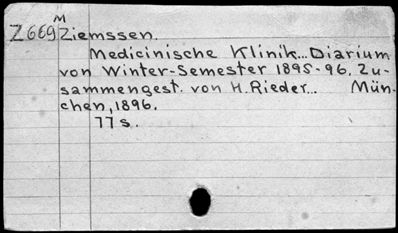 M
Z669 Ziemssen.
Medicinische Klinik... Diarium
von Winter-Semester 1895-96. Zu-
sammengest. von H. Rieder... Mün-
chen, 1896.
77 s.